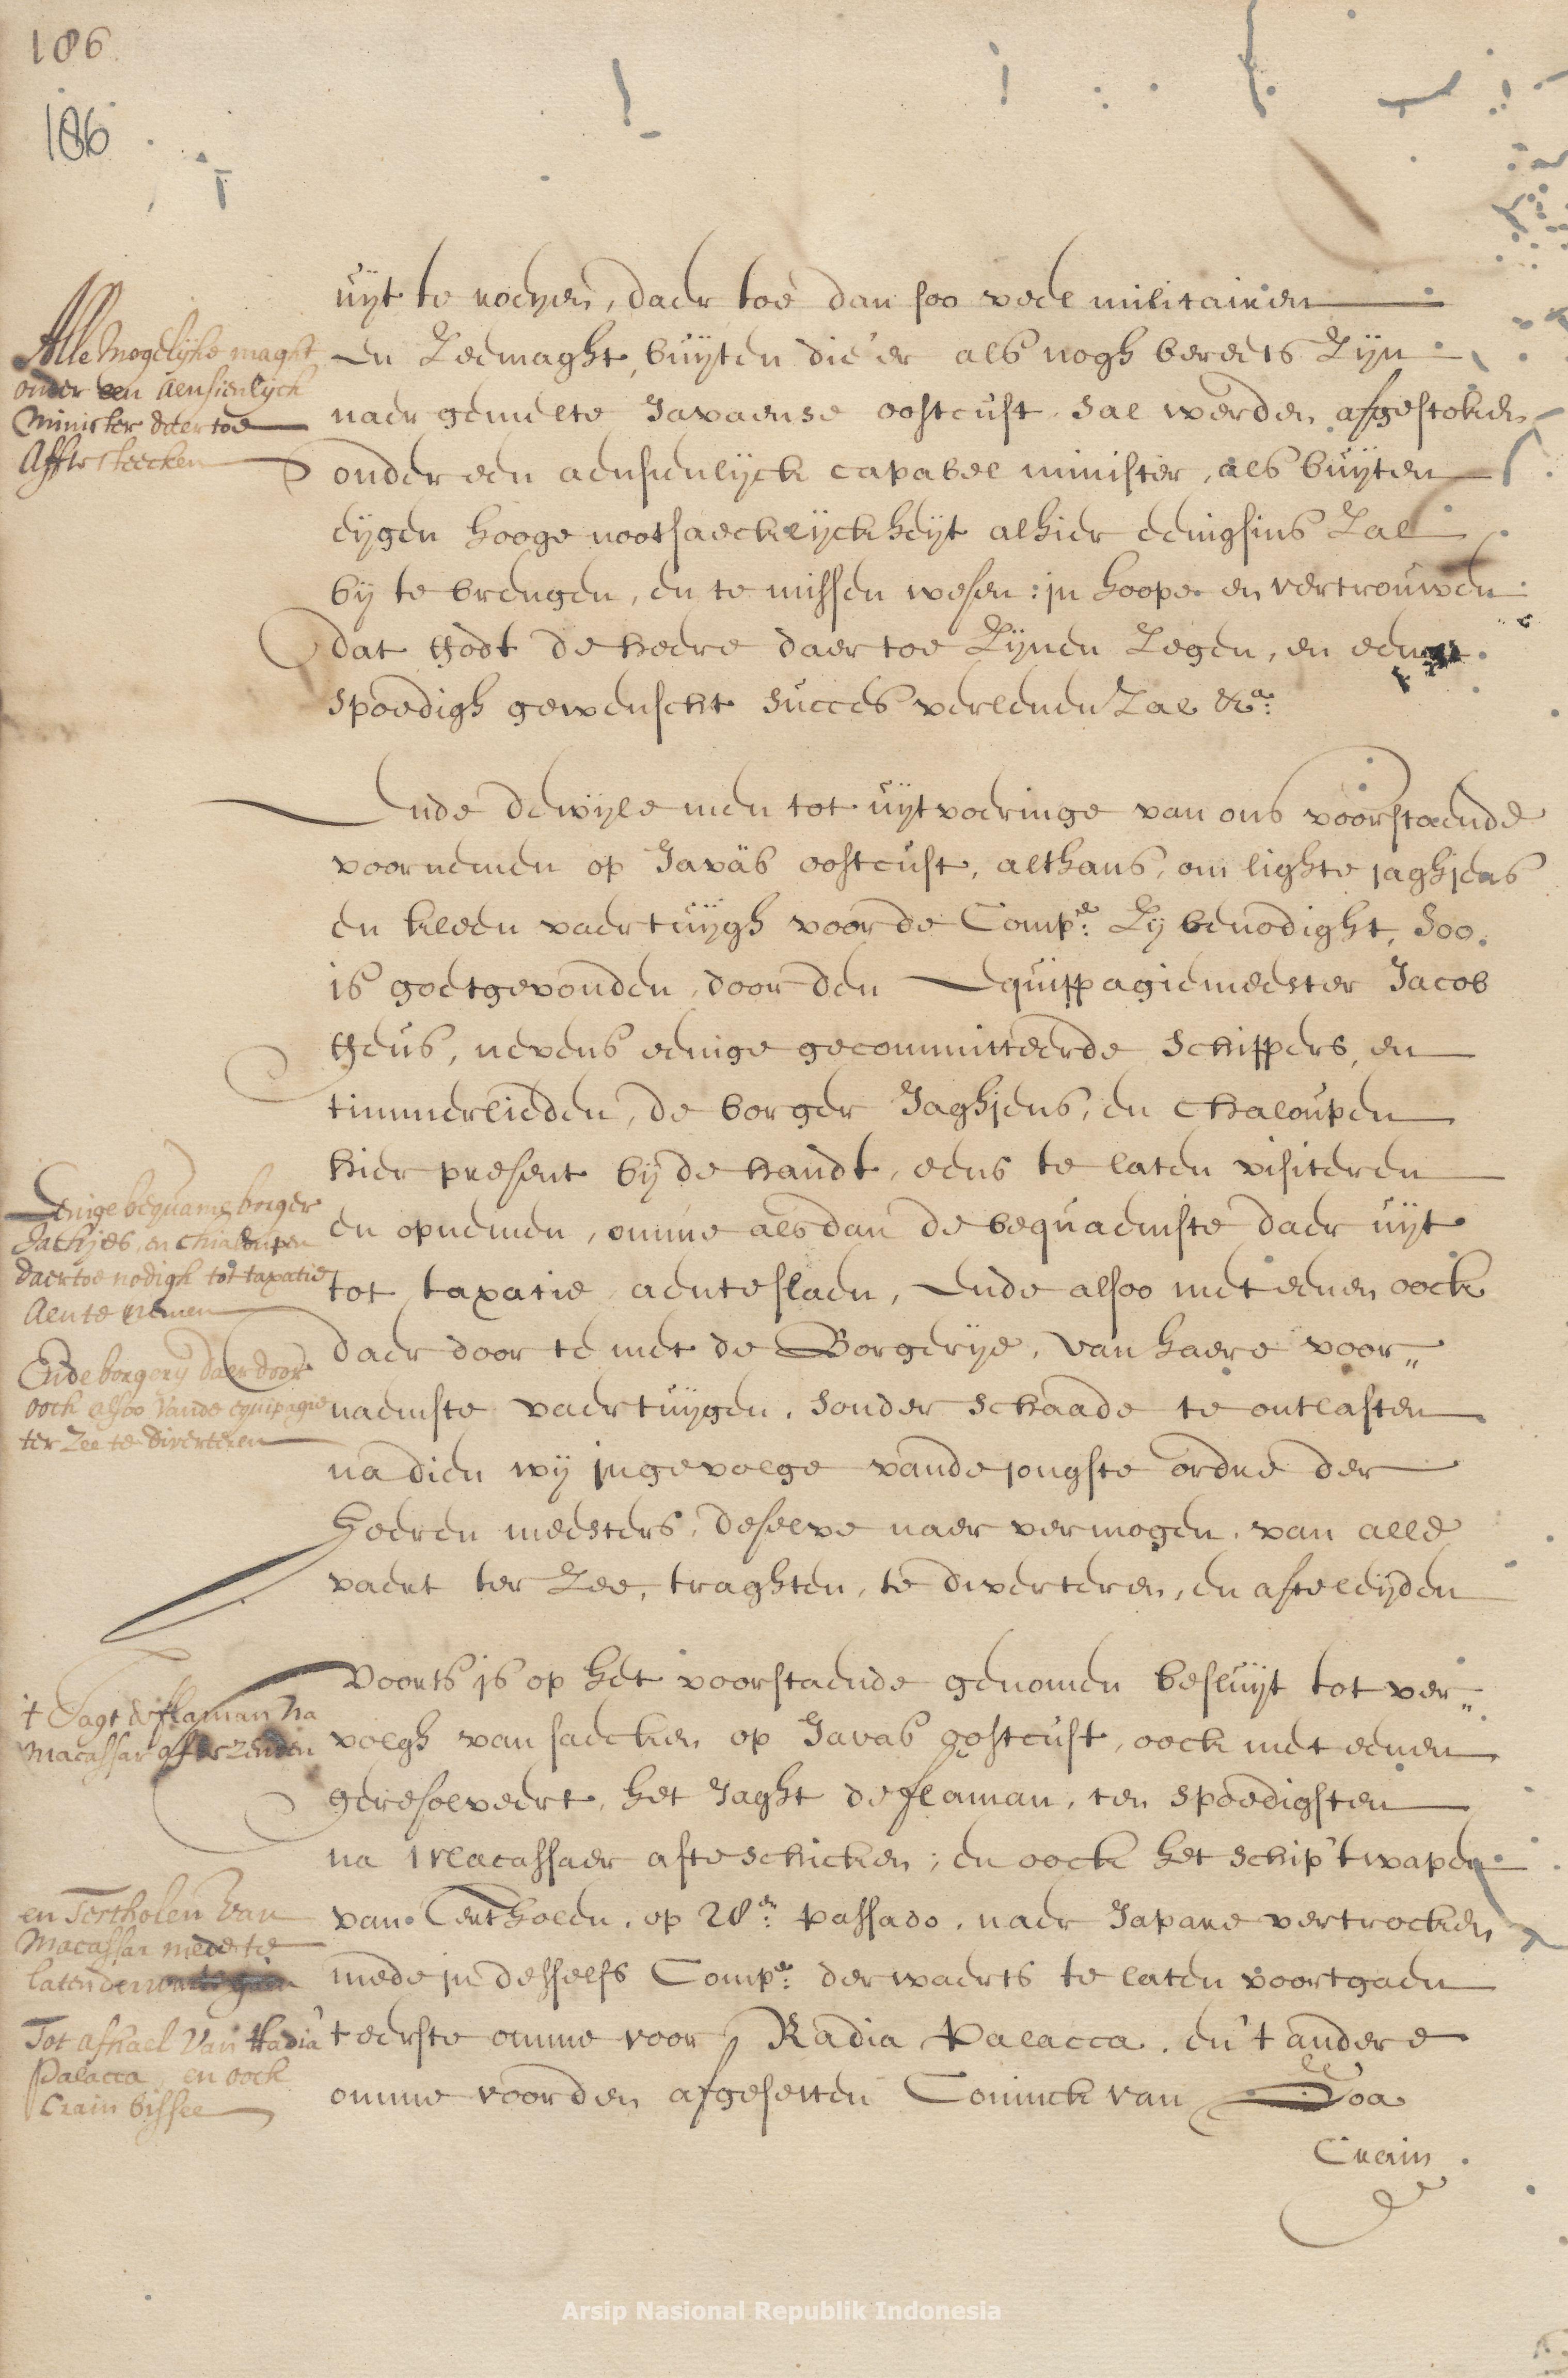 186
186
uijt te roeyen, daer toe dan soo veel militairen
en Zeemaght, buijten die 'er als nogh bereets Zijn
naer gemelte Javaense oostcust. sal werden afgestoken
onder een aensienlijck capabel minister, als buijten
eijgen hooge nootsaeckelijckheijt alhier eenigsins Zal
bij te brengen, en te missen wesen: jn hoope en vertrouwen
dat Godt de heere daer toe Zijnen Zegen, en een
spoedigh gewenscht succes verlenen Zal &a:
Alle Mogelijke maght
onder een Aensienlijck
Minister daer toe
Aff te steecken
Ende dewijle men tot uijtvoeringe van ons voorstaende
voornemen op Javas oostcust, althans, om lighte jaghjens
en kleen vaertuijgh voor de Compe: Zij benodight, Soo
is goetgevonden, door den Equippagiemeester Jacob
Geus, nevens eenige gecommitteerde Schippers, en
timmerlieden, de borger Jaghjens, en Chaloupen
hier present bij de handt, eens te laten visiteren
en opnemen, omme alsdan de bequaemste daer uijt
tot taxatie aenteslaen, Ende alsoo met eenen oock
daer door te met de Borgerije, van haere voor„
naemste vaertuijgen, sonder schaade te ontlasten
na dien wij jngevolge vande jongste ordre der
Heeren meesters, deselve naer vermogen, van alle
vaert ter Zee, traghten, te diverteren, en afteleijden
Eenige bequame borger
Jachjes, en Chialoupen
daer toe nodigh tot taxatie
Aen te nemen
En de borgerij daer door
oock alsoo Van de equipagie
ter Zee te Diverteren
Voorts js op het voorstaende genomen besluijt tot ver„
volgh van saecken op Javas oostcust, oock met eenen
geresolveert, het Jaght de flaman, ten spoedigsten
na Macassaer afteschicken; en oock het schip 't wapen
van Tertholen, op 28en: passado, naer Japare vertrocken
mede jn desselfs Compe: derwaerts te laten voortgaen
t eerste omme voor Radia Palacca, en 't andere
omme voor den afgesetten Coninck van Goa
Crain
't Jagt de flaman Na
Macassar aff te Zenden
en Tertholen Van
Macassar mede te
laten
Tot afhael Van Radia
Palacca, en oock
Crain bissee
Arsip Nasional Republik Indonesia